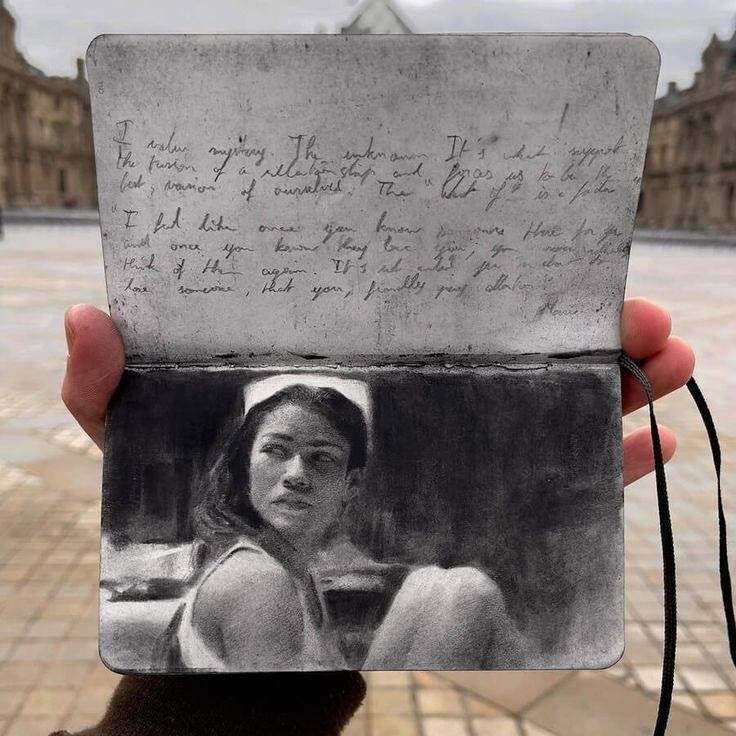 I value mystery. The unknown. It's what support
the passion of a relationship and forces us to be the
best version of ourselves. The "what if" is a
I feel like once you know someone there for you
and once you know they love you, you never
think of them again. It's not until you
love someone, that you, finally pay